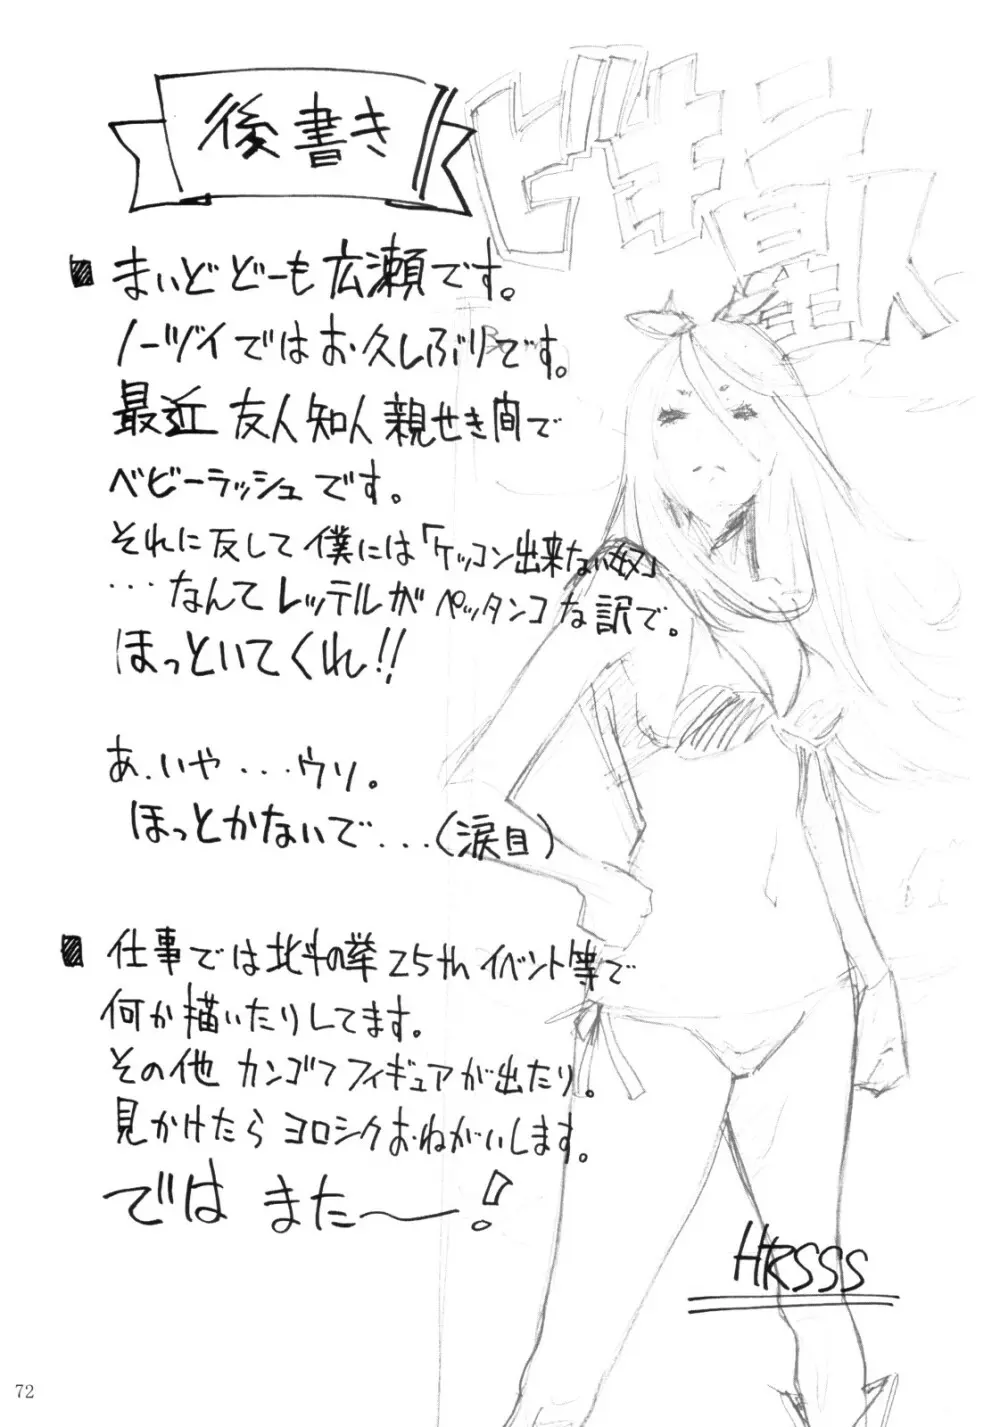 後書き
まいどどーも広瀬です。
ノーヅイではお久しぶりです。
最近友人知人親せき間で
ベビーラッシュです。
それに反して僕には「ケッコン出来ない奴」
...なんてレッテルがペッタンコな訳で。
ほっといてくれ!!
あ、いや...ウソ。
ほっとかないで...(涙目)
仕事では北斗の拳25thイベント等で
何か描いたりしてます。
その他カンゴフフィギュアが出たり。
見かけたらヨロシクおねがいします。
ではまた〜!
HRSSS
72